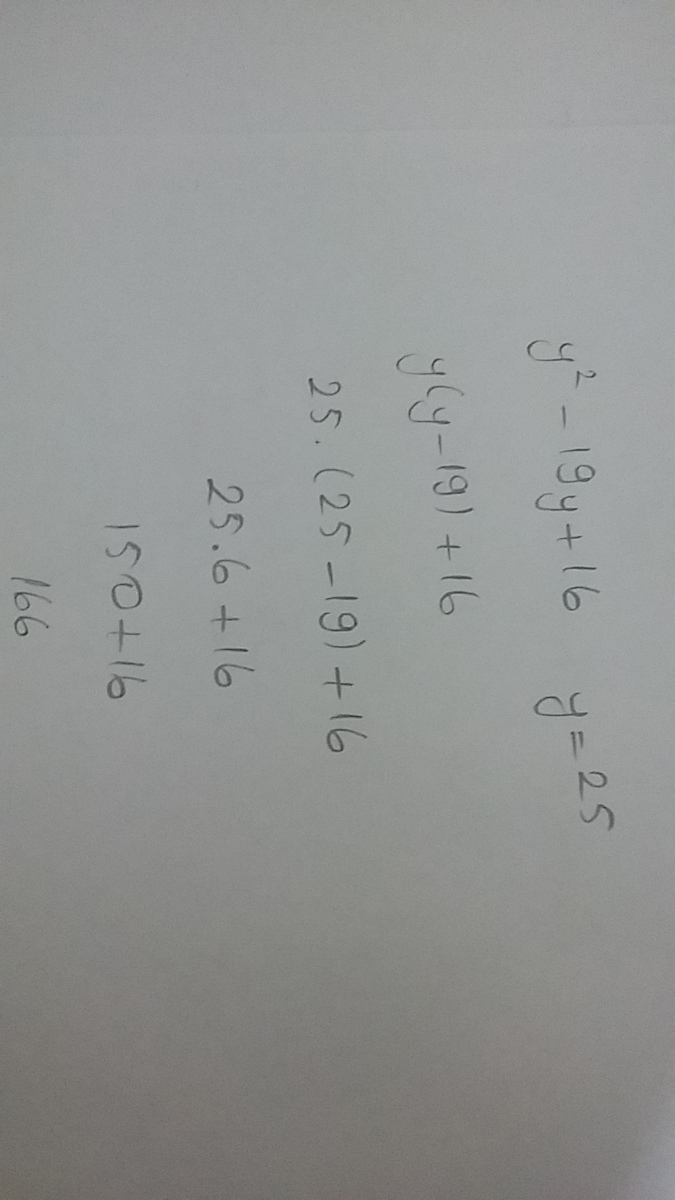 y² - 19y + 16 y = 25
y(y - 19) + 16
25. (25 - 19) + 16
25.6 + 16
150 + 16
166